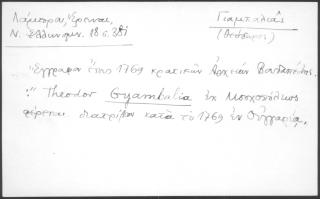 Λάμπρου, Ἔρευναι,
Ν. Ἑλληνομν. 18 σ. 381
Γιαμπαλιᾶς
(Θεόδωρος)
Ἔγγραφον ἔτους 1769 κρατικῶν Ἀρχείων Βουδαπέστης.
:" Theodor Gyambalia ἐκ Μοσχοπόλεως
φέρεται διατρίβων κατὰ τὸ 1769 ἐν Οὑγγαρίᾳ.